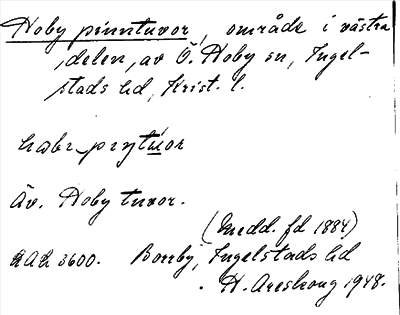 Hoby pinntuvor, område i västra
delen, av Ö. Hoby sn, Ingel-
stads hd, Krist. l.
Äv. Hoby tuvor.
(Medd. fd 1884)
3600. Borrby, Ingelstads hd
H. Areskoug 1948.